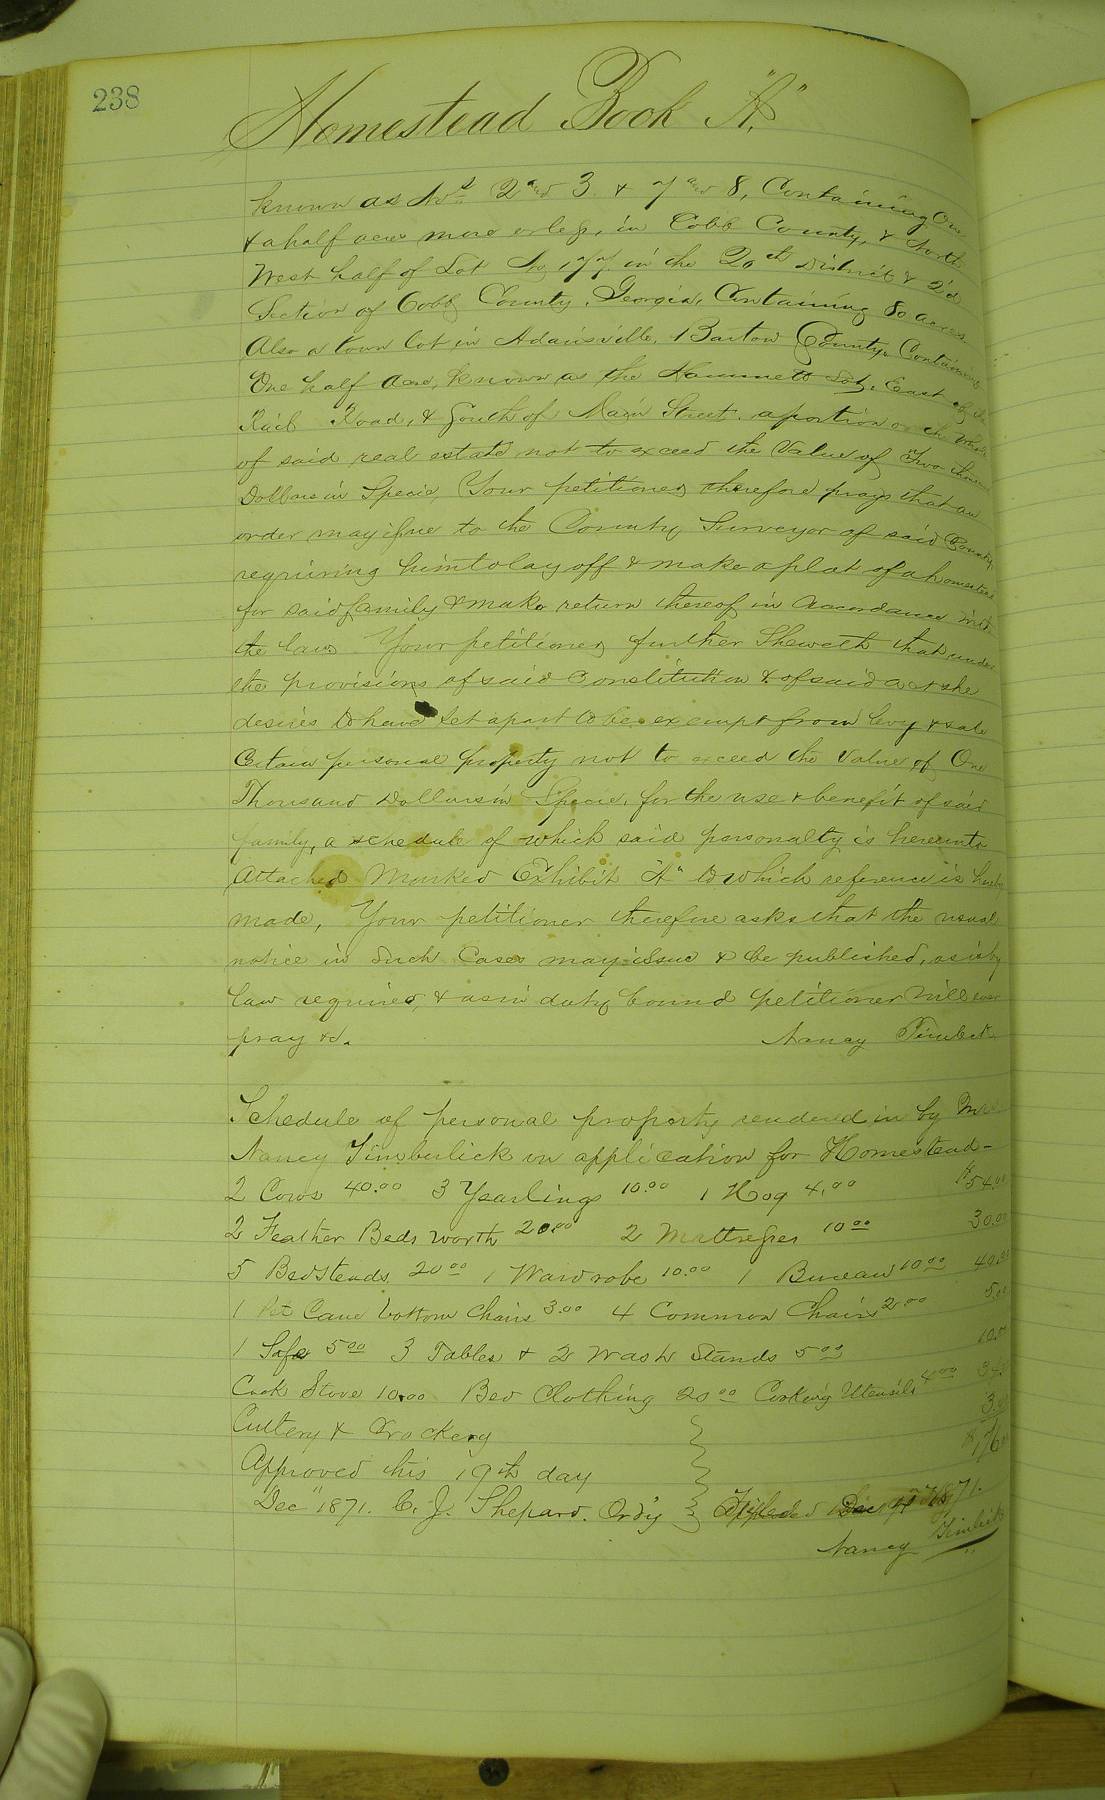 238
Homestead Book "A."
known as Nos 2 and 3 & 7 and 8, Containing One
& a half acre more or less, in Cobb County, & North
West half of Lot No 177 in the 20th District & 2d
Section of Cobb County, Georgia, Containing 80 acres.
Also a town lot in Adairsville, Bartow County, Containing
One half Acre, known as the Hammett Lot, East of the
Rail Road, & South of Main Street, a portion or the whole
of said real estate not to exceed the Value of Two thousand
Dollars in Specie. Your petitioner therefore prays that an
order may issue to the County Surveyor of said County,
requiring him to lay off & make a plat of a homestead
for said family & make return thereof in accordance with
the law. Your petitioner further Sheweth that under
the provisions of said Constitution & of said act she
desires to have set apart to be exempt from levy & sale
Certain personal property not to exceed the Value of One
Thousand Dollars in Specie, for the use & benefit of said
family, a schedule of which said personalty is hereunto
Attached Marked Exhibit "A" to which reference is hereby
made, Your petitioner therefore asks that the usual
notice in such Cases may issue & be published, as is by
law required, & as in duty bound petitioner will ever
pray &c. Nancy Timberlick
Schedule of personal property rendered in by Mrs
Nancy Timberlick in application for Homestead-
2 Cows 40.00 3 Yearlings 10.00 1 Hog 4.00 $54.00
2 Feather Beds worth 20.00 2 Mattresses 10 00 30.00
5 Bedsteads 20 00 1 Wardrobe 10.00 1 Bureau 10 00 40.00
1 Set Cane bottom Chairs 3.00 4 Common Chairs 2.00 5.00
1 Safe 5 00 3 Tables & 2 Wash Stands 5 00 10.00
Cook Stove 10.00 Bed Clothing 20 00 Cooking Utensils 4 00 34.00
Cutlery & Crockery 3.00
Approved this 19th day $176.00
Dec" 1871. C. J. Shepard. Ordy Dec 1871.
Nancy Timberlick